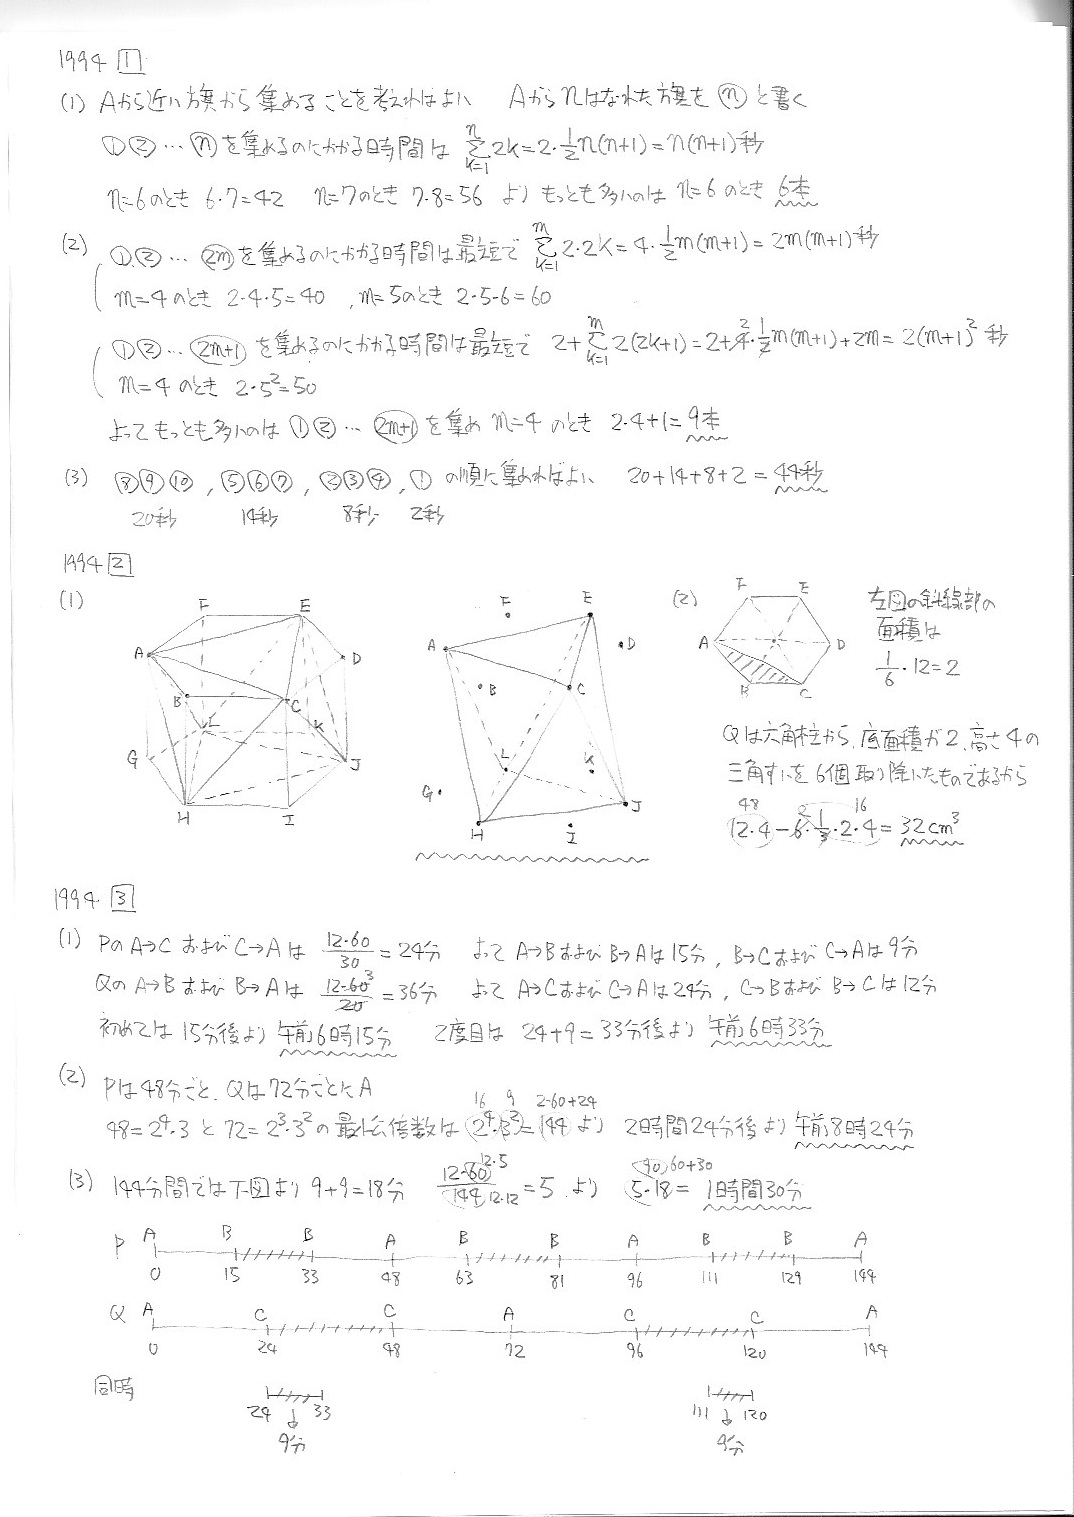 1994 1
(1) Aから近い旗から集めることを考えればよい Aからnはなれた旗を ⓝ と書く
①② … ⓝ を集めるのにかかる時間は \sum_{k=1}^{n} 2k = 2・\frac{1}{2}n(n+1) = n(n+1)秒
n=6のとき 6・7=42 n=7のとき 7・8=56 より もっとも多いのは n=6 のとき 6本
(2) ①② … (2m) を集めるのにかかる時間は最短で \sum_{k=1}^{m} 2・2k = 4・\frac{1}{2}m(m+1) = 2m(m+1)秒
m=4のとき 2・4・5=40 , m=5のとき 2・5・6=60
①② … (2m+1) を集めるのにかかる時間は最短で 2+\sum_{k=1}^{m} 2(2k+1) = 2+4・\frac{1}{2}m(m+1)+2m = 2(m+1)^2 秒
2
m=4 のとき 2・5^2=50
よってもっとも多いのは ①② … (2m+1) を集め m=4 のとき 2・4+1= 9本
(3) ⑧⑨⑩ , ⑤⑥⑦ , ②③④ , ① の順に集めればよい 20+14+8+2 = 44秒
20秒 14秒 8秒 2秒
1994 2
(1)
F E
A D
B C
L K
G J
H I
F E
A D
B C
L K
G J
H I
(2)
F E
A D
B C
左図の斜線部の
面積は
\frac{1}{6}・12=2
Qは六角柱から、底面積が2、高さ4の
三角すいを6個取り除いたものであるから
48 2 16
12・4-6・\frac{1}{3}・2・4= 32cm^3
1994 3
(1) PのA→CおよびC→Aは \frac{12・60}{30} = 24分 よって A→BおよびB→Aは15分, B→CおよびC→Aは9分
QのA→BおよびB→Aは \frac{12・60}{20} = 36分 よって A→CおよびC→Aは24分, C→BおよびB→Cは12分
3
初めては 15分後より 午前6時15分 2度目は 24+9=33分後より 午前6時33分
(2) Pは48分ごと、Qは72分ごとにA
16 9 2・60+24
48=2^4・3 と 72=2^3・3^2の最小公倍数は 2^4・3^2=144 より 2時間24分後より 午前8時24分
(3) 144分間では下図より 9+9=18分 \frac{12・60}{144} =5 より 5・18= 1時間30分
12・5 12・12 90, 60+30
P A B B A B B A B B A
0 15 33 48 63 81 96 111 129 144
Q A C C A C C A
0 24 48 72 96 120 144
同時
24 33 111 120
9分 9分